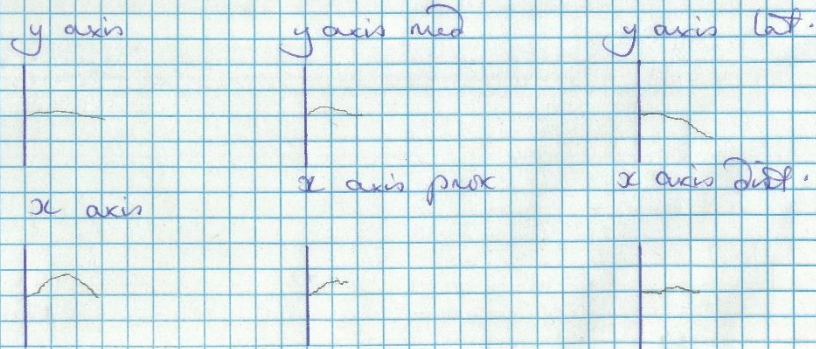 y axis
y axis med
y axis lat.
x axis
x axis prox
x axis dist.